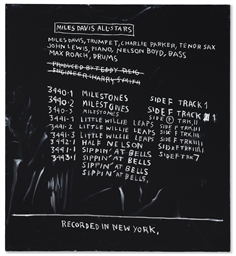 MILES DAVIS ALL-STARS
MILES DAVIS, TRUMPET, CHARLIE PARKER, TENOR SAX
JOHN LEWIS, PIANO, NELSON BOYD, BASS
MAX ROACH, DRUMS
PRODUCED BY TEDDY REIG
ENGINEER HARRY SMITH
3440-1 MILESTONES SIDE F TRACK 1
3440-2 MILESTONES SIDE F TRACK
3440-3 MILESTONES SIDE F TRK II
3441-1 LITTLE WILLIE LEAPS SIDE F TRK III
3441-2 LITTLE WILLIE LEAPS SIDE F TRK III
3441-3 LITTLE WILLIE LEAPS
3442-1 HALF NELSON
3443-1 SIPPIN' AT BELLS SIDE F TRK 7
SIPPIN' AT BELLS
SIPPIN' AT BELLS
SIPPIN' AT BELLS,
RECORDED IN NEW YORK,